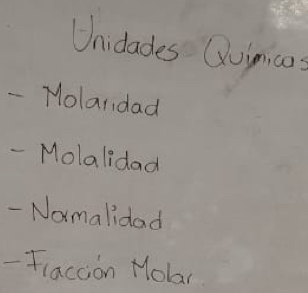 Unidades Químicas
- Molaridad
- Molalidad
- Normalidad
- Fracción Molar